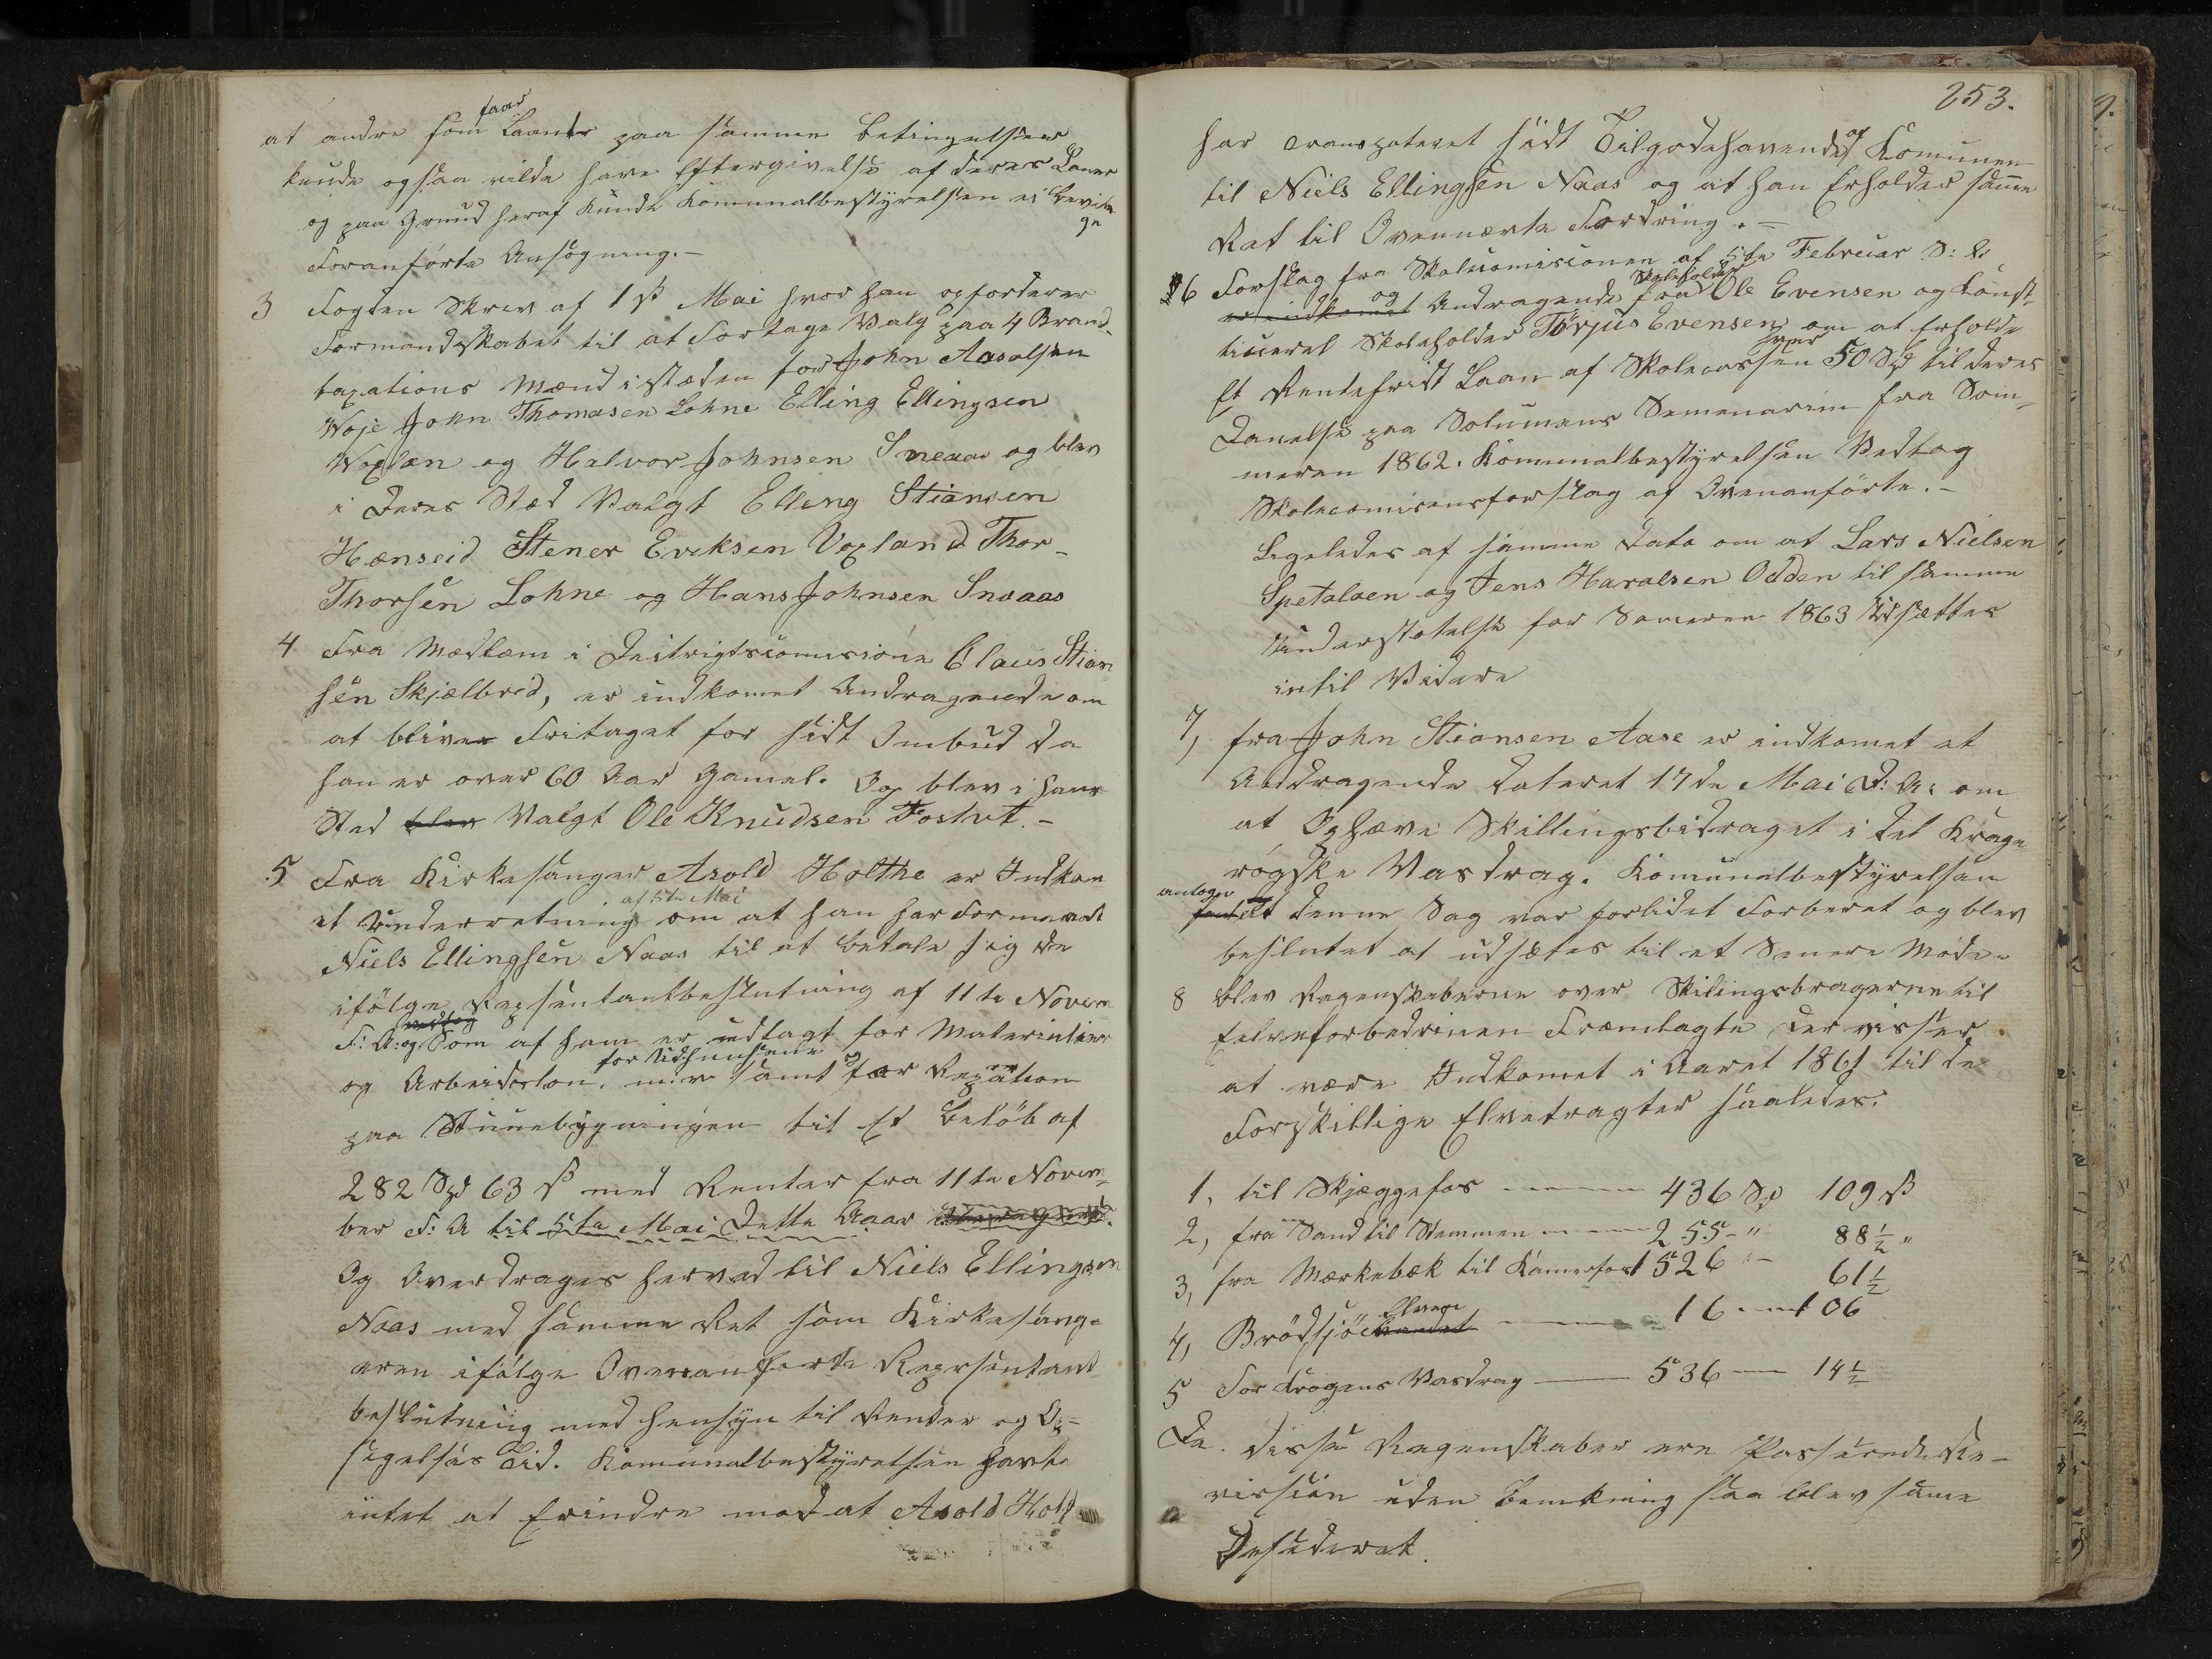 faar
at andre som Laante paa samme betingelser
kunde ogsaa vilde have Eftergivelse af deres Laaner
og paa Grund heraf kunde Komunalbestyrelsen ei bevil-
ge
Foranførte Ansøgning.-
3 Fogden Skriv af 1st Mai hvor han opforderer
Formandskabet til at Fortage Valg paa 4 Brand-
taxations Mænd i stæden for John Aasolsen
Woje John Thomasen Lohne Elling Ellingsen
Woxlan og Halvor Johnsen Sneaas og blev
i deres Sted Valgt Elleng Stiansen
Hænseid Stener Eveksen Voxland Thor-
Thorsen Lohne og Hans Johnsen Sneaas
4 Fra Medlem i Claus Stian-
sen Skjælbred, er indkomet Andragende om
at bliver Fritaget for sidt Ombud da
han er over 60 Aar Gamel. Og blev i hans
Sted blev Valgt Ole Knudsen Fostvet.-
5 Fra Kirkesanger Asold Holthe er Indkom
af 5te Mai
et Underretning om at han har Formaaet
Niels Ellingsen Naas til at betale sig de
ifølge Repsentantbeslutning af 11te Novem
vedtog
F: A: og Som af ham er udlagt for Materialier
for Udhuusene og
og Arbeidsløn. m.v samt for Repation
paa Stuuebygningen til Et Beløb af
282 Spd 63 ß med Renter fra 11te Novem-
ber F: A til 5te Mai dette Aaar
Og Overdrages herved til Niels Ellingsen
Naas med samme Ret som Kirkesang-
eren ifølge Ovenanførte Repsentant
beslutning med hensyn til Renter og Op-
sigelses Tid. Komunalbestyrelsen havte
intet at Erindre mod at Asold Holt
253.
har Transpoteret sidt Tilgodehavende af Komunen
til Niels Ellingsen Naas og at han Erholder same
Ret til Ovennævte Fordring.-
6 Forslag fra Skolecomisionen af 5te Februar D: A
og Skoleholder
er indkomet Andragende fra Ole Evensen og Konst-
titueret Skoleholder Törjus Evensen om at Erholde
hver
Et Rentefridt Laan af Skolecassen 50 Spd til deres
Danelse paa Solumens Semenarium fra Som-
meren 1862. Komunalbestyrelsen Vedtog
Skolecomisensforslag af Ovenanførte.-
Ligeledes af samme Dato om at Lars Nielsen
Spetalaen og Jens Haralsen Odden til samme
Understøtelse for Someren 1863 Udsættes
intil Videre
7, fra John Stiansen Aase er indkomet et
Andragende dateret 17de Mai D: A: om
at Ophæve Skillingsbidraget i det Krage
røgske Vasdrag. Komunalbestyrelsen
antoge
fandt at denne Sag var forlidet Forberet og blev
besluttet at udsætes til et Senere Møde.
8 blev Regenskaberne over Skilingsbragerne til
Elveforbedrinen Fremlagte der visser
at være Indkomet i Aaret 1861 til de
Forskillige Elvetragter saaledes.
1, til Skjæggefos 436 Sp 109 ß
2, fra Sand til Stemmen 255-" 88½ "
3, fra Mærkebæk til Kamerfos 1526 "- 61½
Elven
4, Brødsjöe vandet 16 106
5 For Krogens Vasdrag 536 14½
Da disse Regenskaber ere Passerede Re-
vision uden Bemkning saa blev same
Desideret.